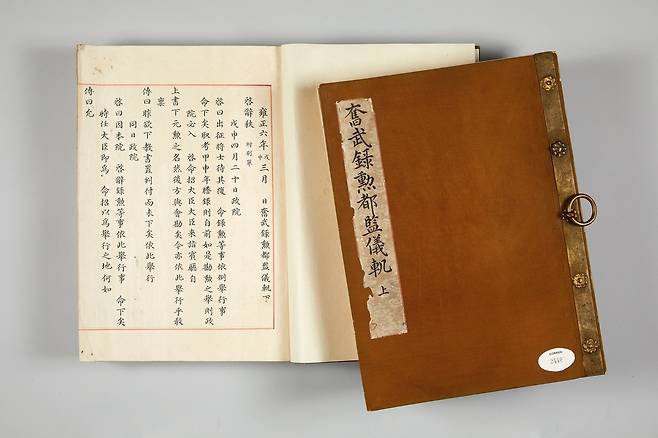 雍正六年戊申三月 日奮武錄勳都監儀軌下
啓辭秩 附別單
戊申四月二十日政院
啓曰出征將士待其後 命錄勳等事依例舉行事
命下矣取考甲申年謄錄則自前如是勘勳之舉則政
院必入 啓命招大臣大臣來詣賓廳自
上書下元勳之名然後方與會勘矣令亦依此舉行乎敢
稟
傳曰昨欲下教書置判付而未下矣依此舉行
同日政院
啓曰因本院 啓辭錄勳等事依此舉行事 命下矣
時任大臣即爲 命招以爲舉行之地何如
傳曰允
奮武錄勳都監儀軌 上
COREEN